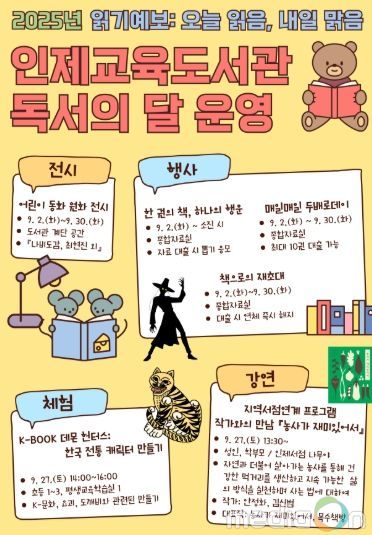 2025년 읽기예보: 오늘 읽음, 내일 맑음
인제교육도서관
독서의 달 운영
전시
어린이 동화 원화 전시
• 9. 2.(화)~9. 30.(화)
• 도서관 계단 공간
• 『나비도감, 최현진 외』
행사
한 권의 책, 하나의 행운
• 9. 2.(화) ~ 소진 시
• 종합자료실
• 자료 대출 시 뽑기 응모
매일매일 두배로데이
• 9. 2.(화) ~ 9. 30.(화)
• 종합자료실
• 최대 10권 대출 가능
책으로의 재초대
• 9. 2.(화)~9. 30.(화)
• 종합자료실
• 대출 시 연체 즉시 해지
체험
K-BOOK 데몬 헌터스:
한국 전통 캐릭터 만들기
• 9. 27.(토) 14:00~16:00
• 초등 1~3, 평생교육학습실 1
• K-문화, 요괴, 도깨비와 관련된 만들기
강연
지역서점연계 프로그램
작가와의 만남 『농사가 재미있어서』
• 9. 27.(토) 13:30~
• 성인, 학부모 / 인제서점 나무이
• 자연과 더불어 살아가는 농사를 통해 건
강한 먹거리를 생산하고 지속 가능한 삶
의 방식을 실천하며 사는 법에 대하여
• 작가: 안정화, 김신범
• 대표작: 농사가 재미있어서, 목수책방